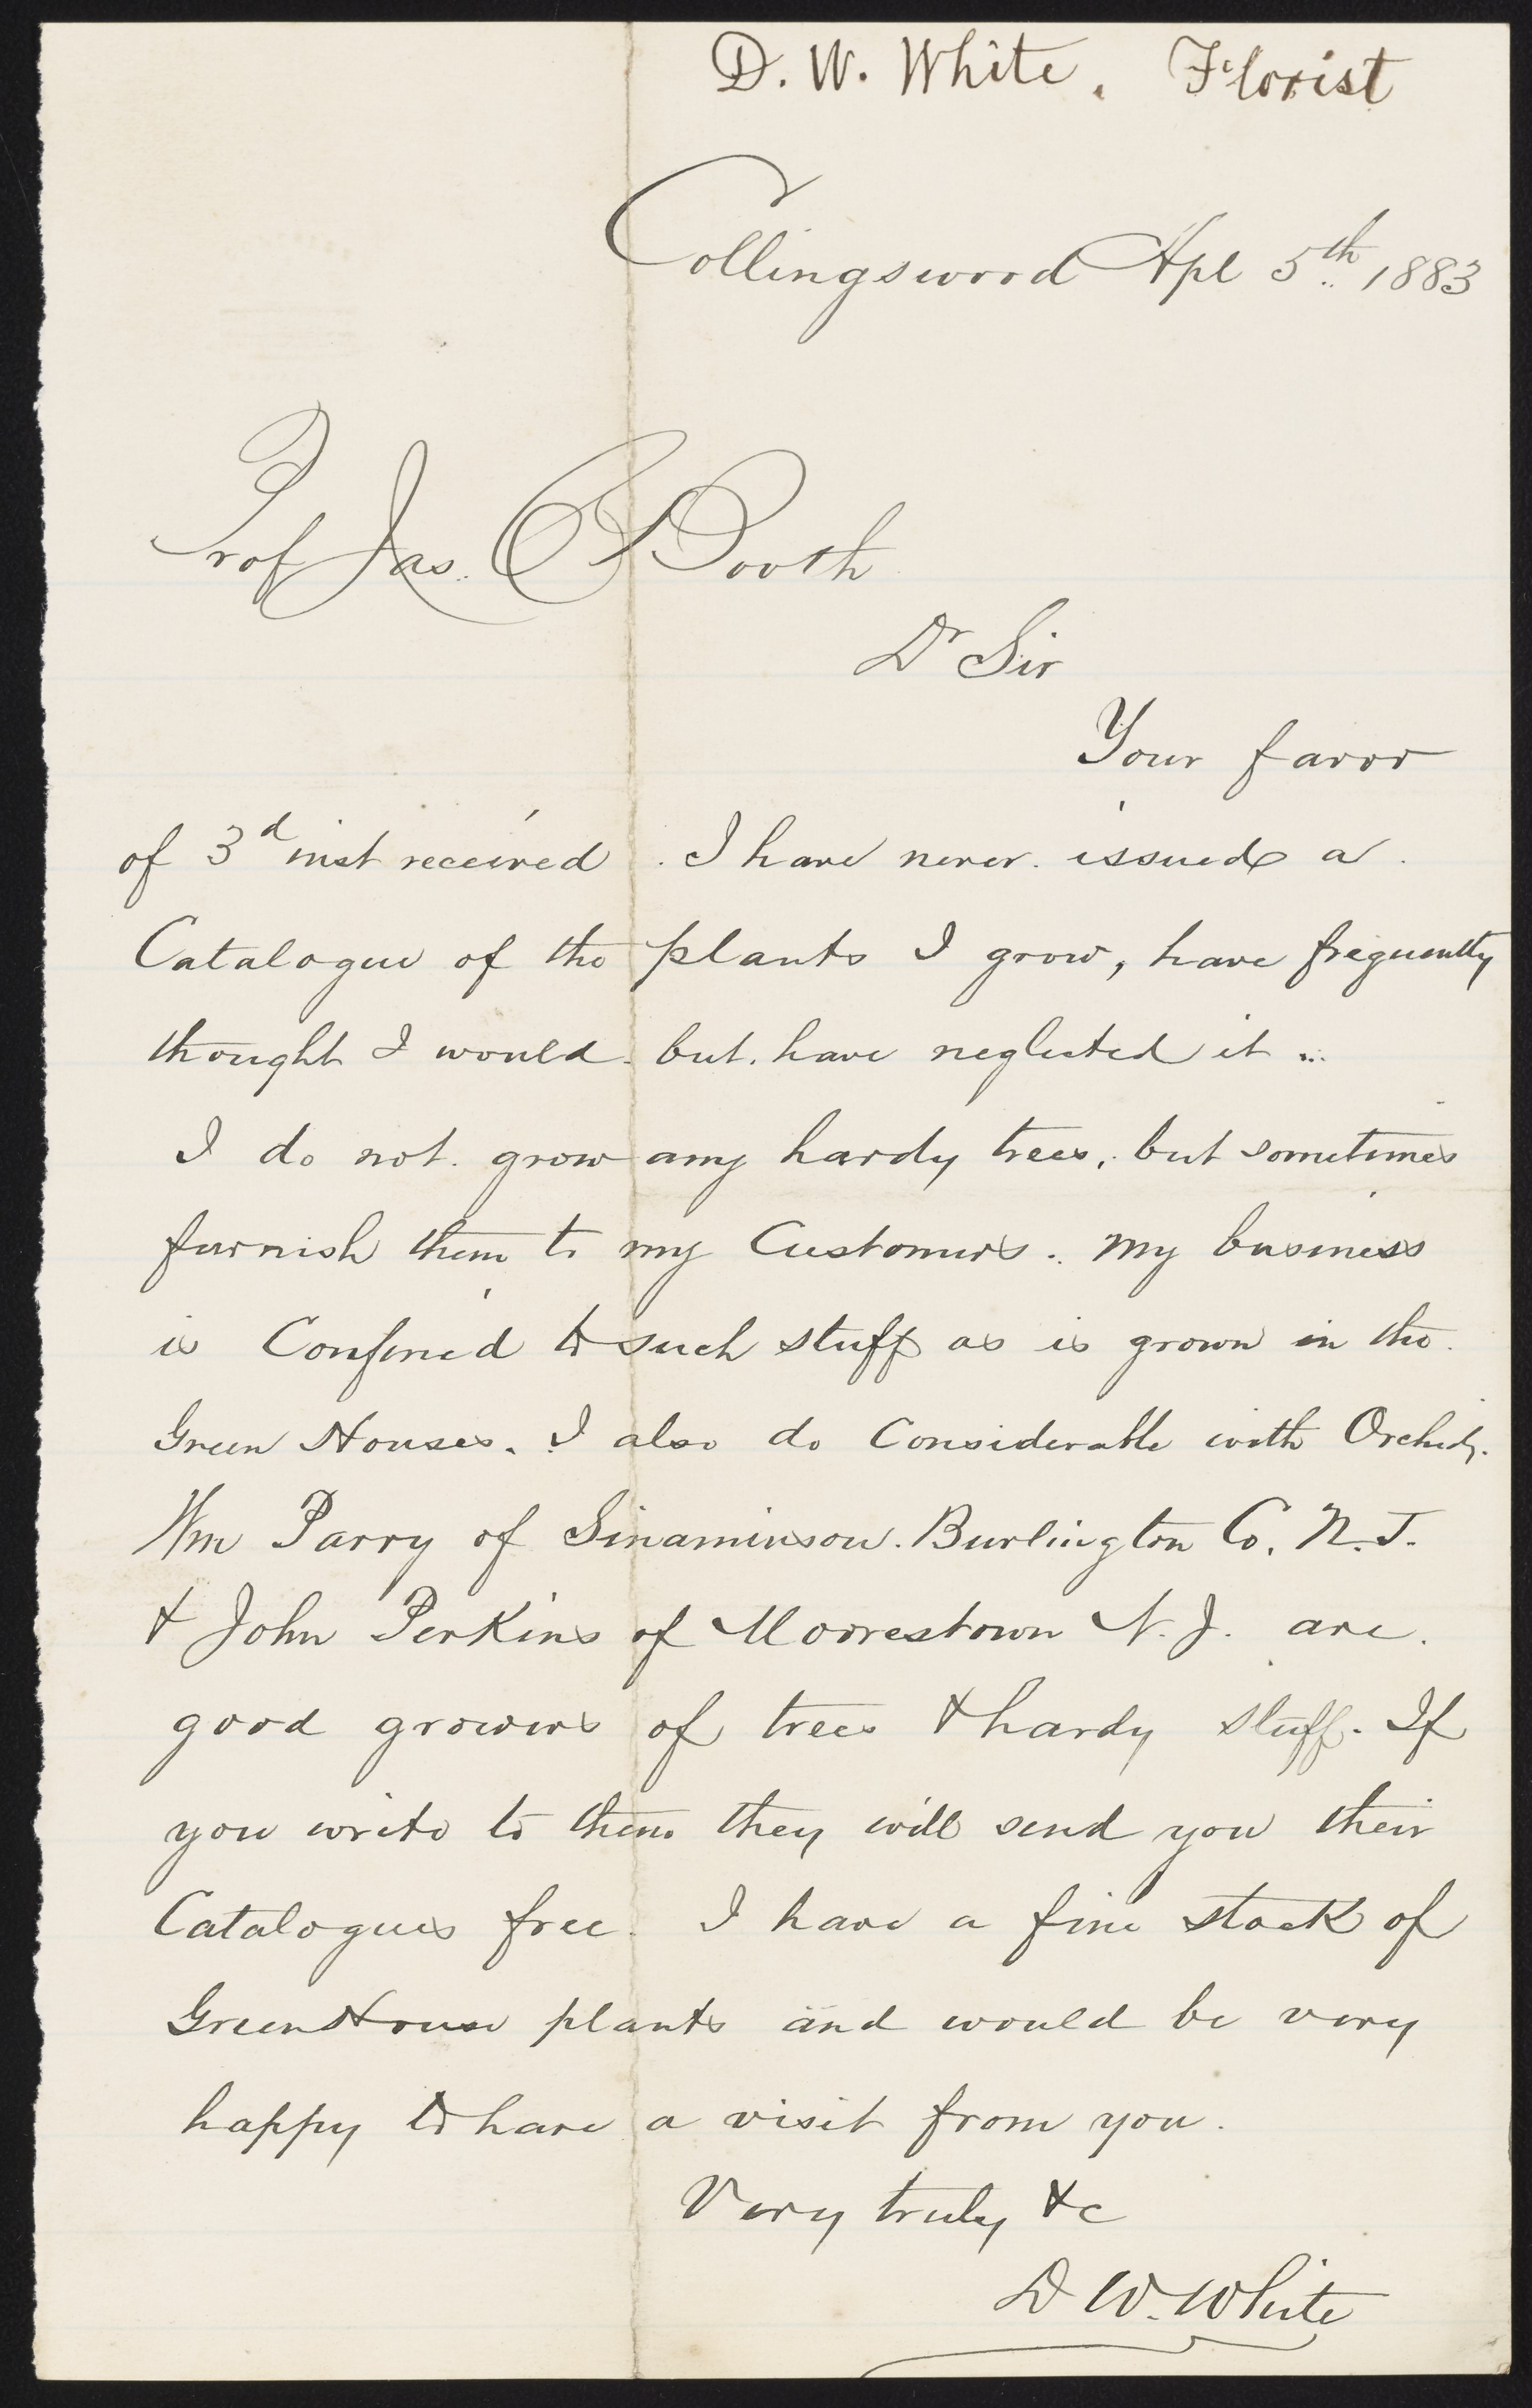 D. W. White, Florist
Collingswood Apl 5th 1883
Prof Jas. C Booth
Dr Sir
Your favor
of 3d inst received. I have never issued a
Catalogue of the plants I grow, have frequently
thought I would but have neglected it.
I do not grow any hardy trees, but sometimes
furnish them to my Customers. My business
is Confined to such stuff as is grown in the
Green Houses. I also do Considerable with Orchids.
Wm Parry of Sinaminson. Burlington Co. N.J.
& John Perkins of Moorestown N.J. are
good growers of trees & hardy stuff. If
you write to them they will send you their
Catalogues free. I have a fine stock of
Green House plants and would be very
happy to have a visit from you.
Very truly &c
D W. White